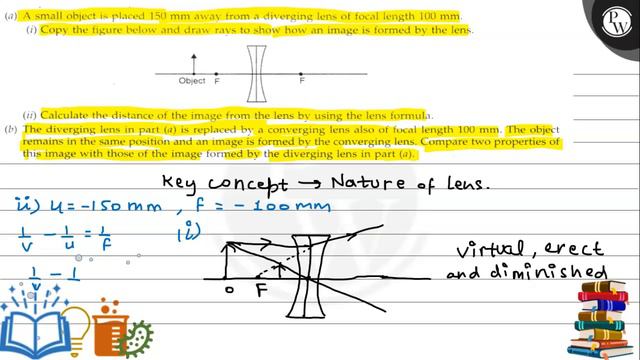 (a) A small object is placed 150 mm away from a diverging lens of focal length 100 mm.
(i) Copy the figure below and draw rays to show how an image is formed by the lens.
Object F F
(ii) Calculate the distance of the image from the lens by using the lens formula.
(b) The diverging lens in part (a) is replaced by a converging lens also of focal length 100 mm. The object
remains in the same position and an image is formed by the converging lens. Compare two properties of
this image with those of the image formed by the diverging lens in part (a).
Key concept → Nature of lens.
ii) u = -150 mm , f = - 100 mm
1/v - 1/u = 1/f
(i)
Virtual, erect
and diminished
1/v - 1
O F
PW